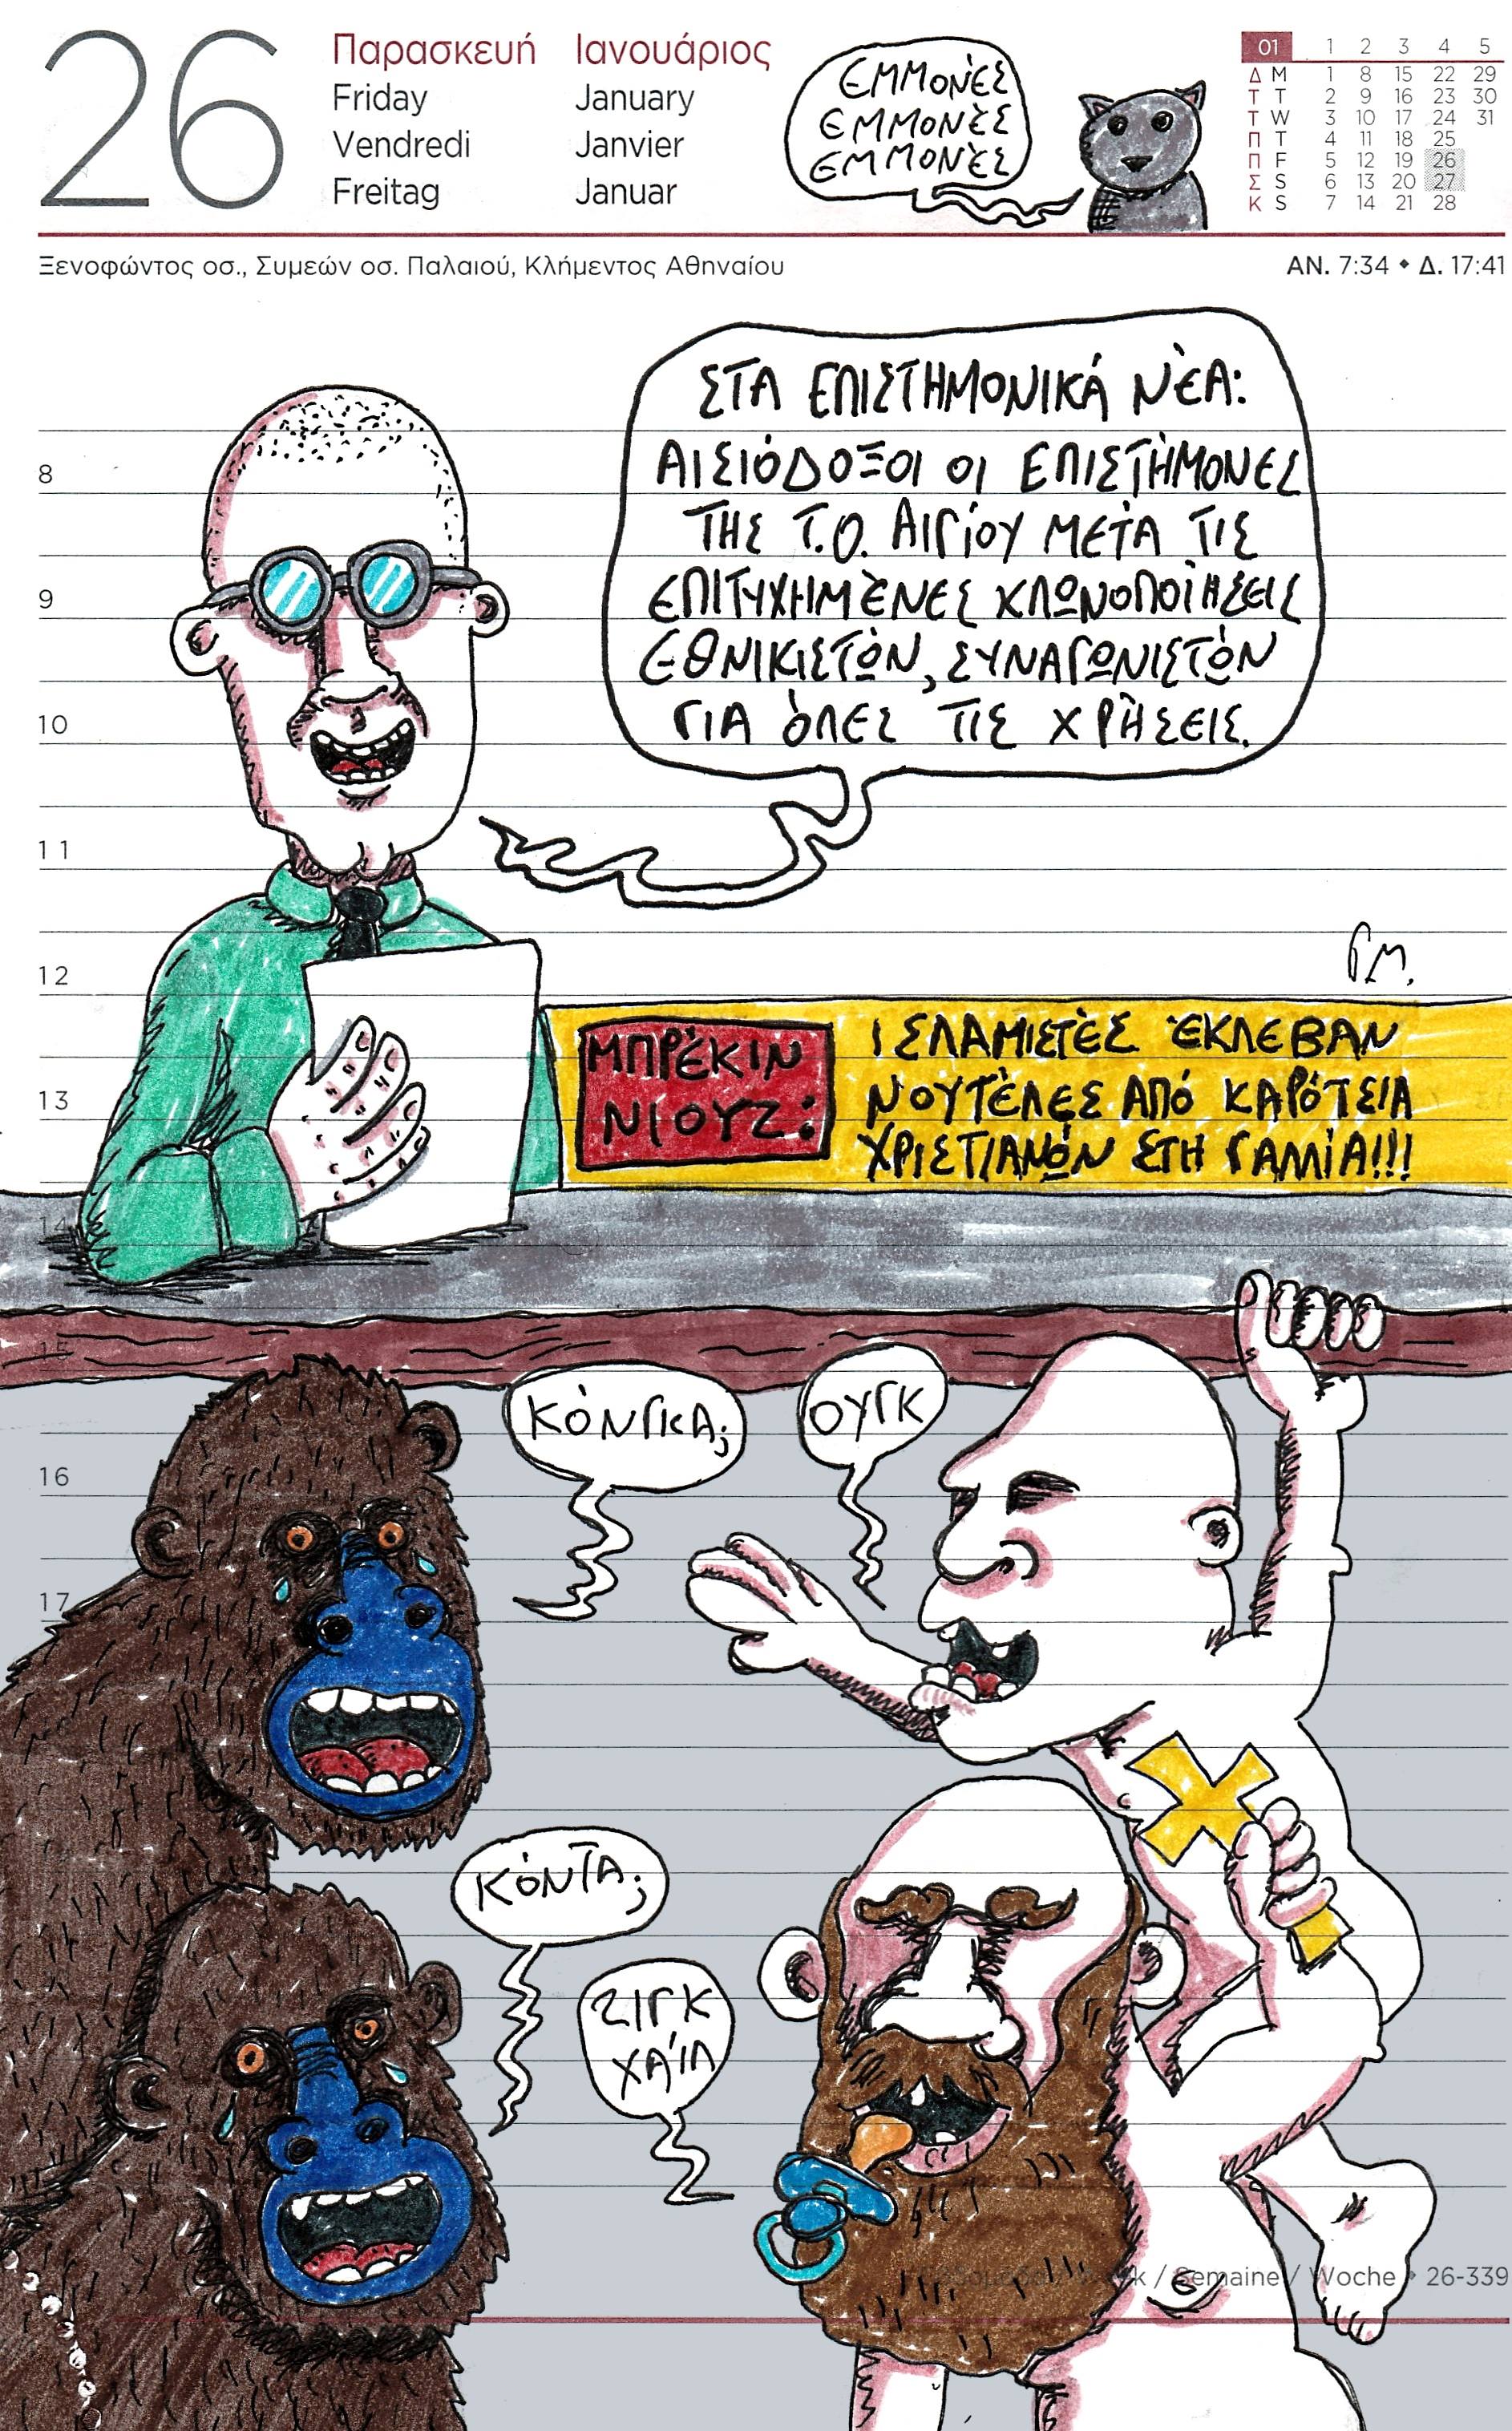 26
Παρασκευή Ιανουάριος
Friday January
Vendredi Janvier
Freitag Januar
ΕΜΜΟΝΈΣ
ΕΜΜΟΝΈΣ
ΕΜΜΟΝΈΣ
01 1 2 3 4 5
Δ M 1 8 15 22 29
Τ T 2 9 16 23 30
Τ W 3 10 17 24 31
Π T 4 11 18 25
Π F 5 12 19 26
Σ S 6 13 20 27
Κ S 7 14 21 28
Ξενοφώντος οσ., Συμεών οσ. Παλαιού, Κλήμεντος Αθηναίου
ΑΝ. 7:34 • Δ. 17:41
ΣΤΑ ΕΠΙΣΤΗΜΟΝΙΚΆ ΝΈΑ:
ΑΙΣΙΌΔΟΞΟΙ ΟΙ ΕΠΙΣΤΉΜΟΝΕΣ
ΤΗΣ Τ.Ο. ΑΙΓΊΟΥ ΜΕΤΆ ΤΙΣ
ΕΠΙΤΥΧΗΜΈΝΕΣ ΧΛΩΝΟΠΟΊΗΣΕΙΣ
ΕΘΝΙΚΙΣΤΏΝ, ΣΥΝΑΓΩΝΙΣΤΏΝ
ΓΙΑ ΌΛΕΣ ΤΙΣ ΧΡΉΣΕΙΣ.
8
9
10
11
12
13
14
15
16
17
ΓΜ.
ΜΠΡΈΚΙΝ
ΝΙΟΥΖ:
ΙΣΛΑΜΙΣΤΈΣ ΈΚΛΕΒΑΝ
ΝΟΥΤΈΛΕΣ ΑΠΌ ΚΑΡΌΤΣΙΑ
ΧΡΙΣΤΙΑΝΏΝ ΣΤΗ ΓΑΛΛΊΑ!!!
ΚΌΝΓΚΑ;
ΟΥΓΚ
ΚΌΝΤΑ;
ΖΙΓΚ
ΧΆΙΛ
/ Semaine / Woche • 26-339